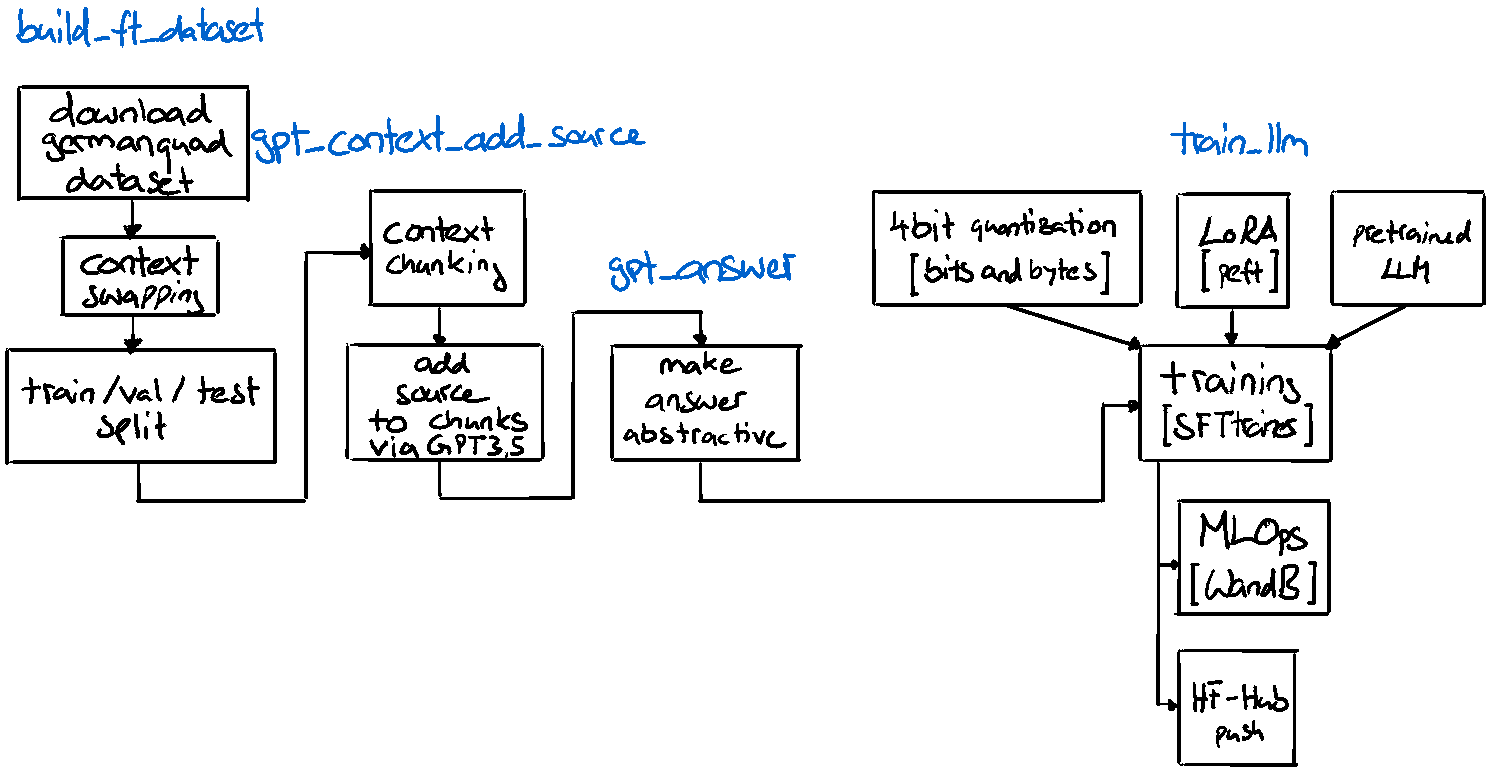 build_ft_dataset
download
germanquad
dataset
context
swapping
train/val/test
split
gpt_context_add_source
context
chunking
add
source
to chunks
via GPT3,5
gpt_answer
make
answer
abstractive
train_llm
4bit quantization
[bits and bytes]
LoRA
[peft]
pretrained
LLM
training
[SFTtrainer]
MLOps
[WandB]
HF-Hub
push